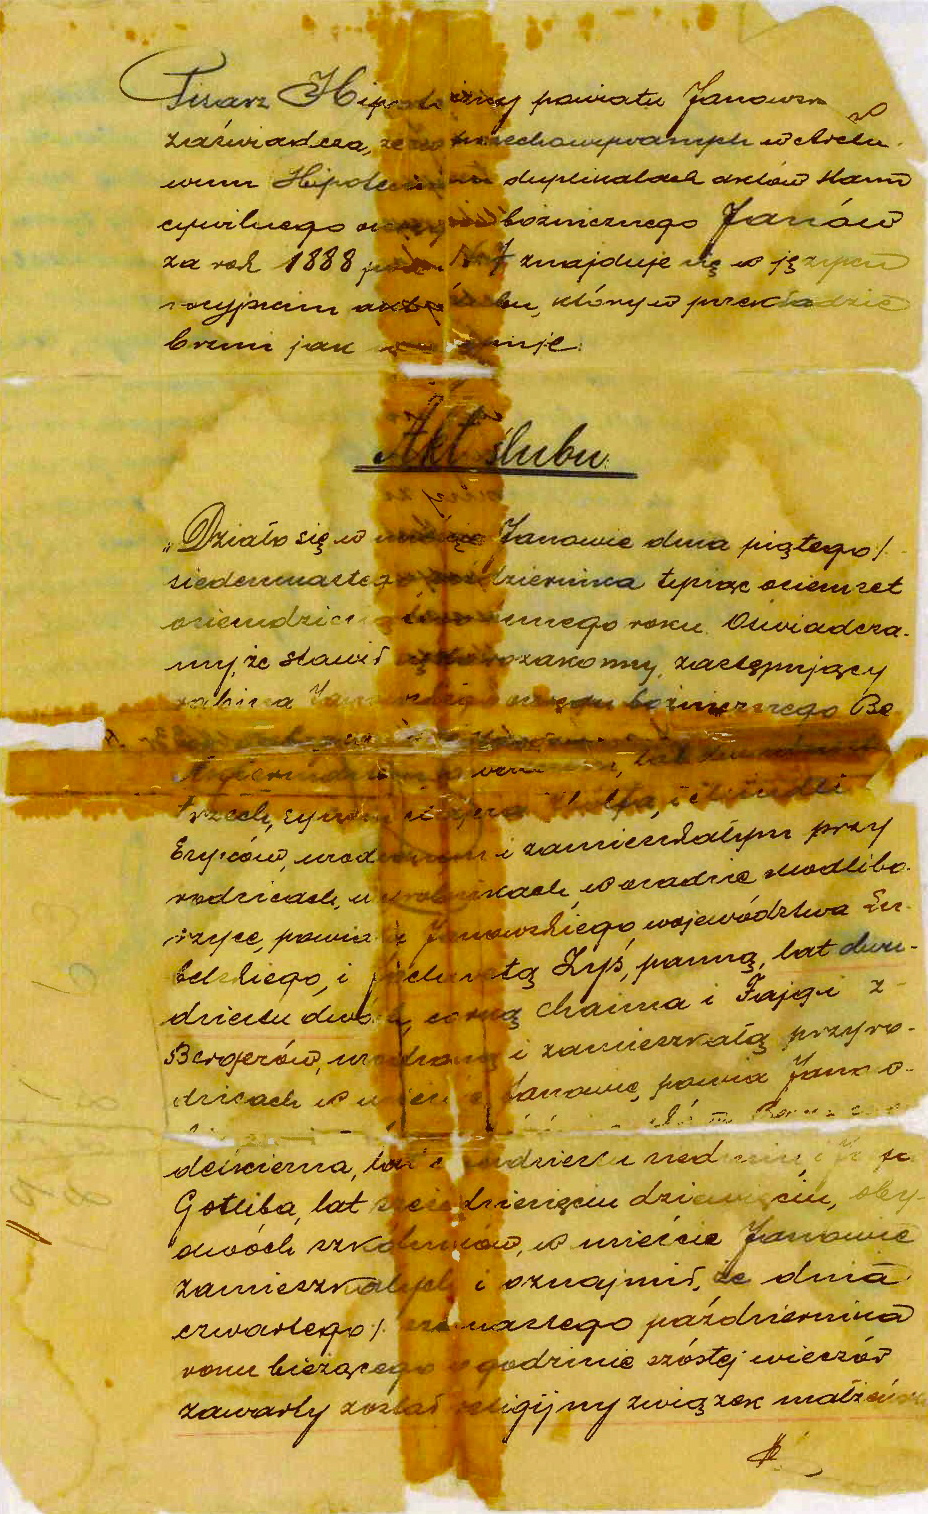 Pisarz Hipoteczny powiatu Janowsk
zaświadcza, że w przechowywanych w Archi-
wum Hipotecznym duplikatach aktów stanu
cywilnego okręgu bożniczego Janów
za rok 1888 pod No 7 znajduje się w języku
rosyjskim akt ślubu, który w przekładzie
brzmi jak następuje:
Akt ślubu
„Działo się w mieście Janowie dnia piątego/
siedemnastego października tysiąc osiemset
osiemdziesiątego ósmego roku. Oświadcza-
my, że stawił się starozakonny, zastępujący
rabina Janowskiego okręgu bożniczego Be
lat
trzech, synem Majera Wolfa, i
Eryców, urodzonym i zamieszkałym przy
rodzicach, w osadzie Modlibo-
rzyce, powiatu Janowskiego województwa Lu-
belskiego, i Zyś, panną, lat dwu-
dziestu dwóch, córką Chaima i Fajgi z
Bergerów, urodzoną i zamieszkałą przy ro-
dzicach w mieście Janowie, powia Janow-
lat dwudziestu siedmiu, i
Gotliba, lat sześćdziesięciu dziewięciu, oby-
dwóch szkolników, w mieście Janowie
zamieszkałych i oznajmił, że dnia
czwartego/ szesnastego października
roku bieżącego o godzinie szóstej wieczór
zawarty został religijny związek małżeński